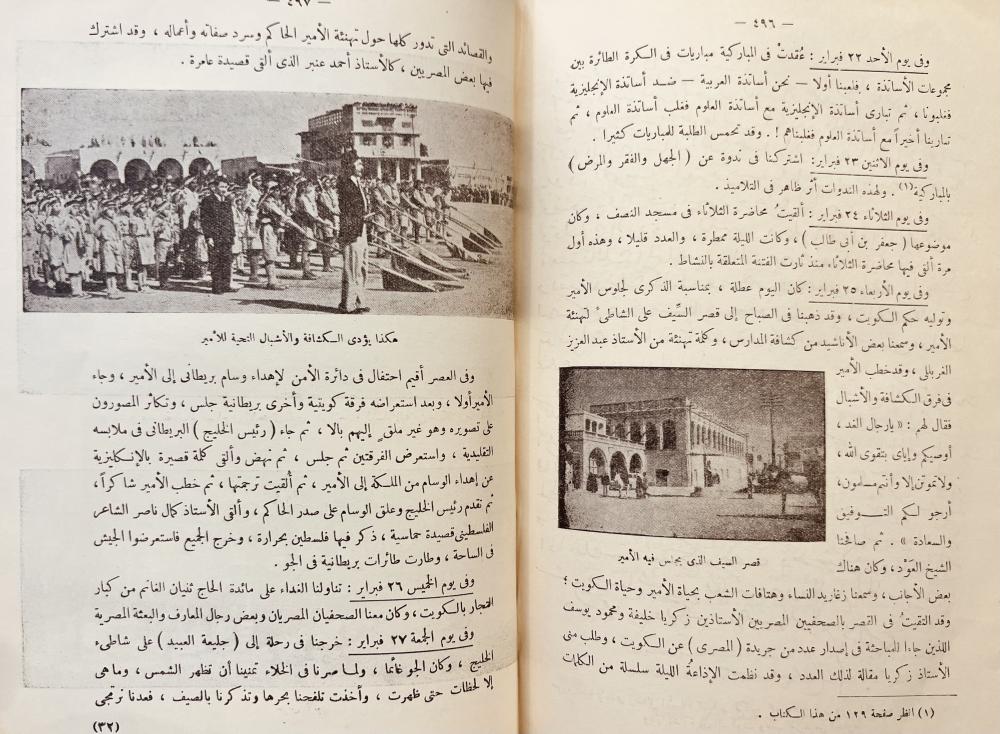 — ٤٩٦ —
وفى يوم الأحد ٢٢ فبراير : عُقدتْ فى المباركية مباريات فى الكرة الطائرة بين
مجموعات الأساتذة ، فلعبنا أولا — نحن أساتذة العربية — ضد أساتذة الإنجليزية
فغلبونا ، ثم تبارى أساتذة الإنجليزية مع أساتذة العلوم فغلب أساتذة العلوم ، ثم
تبارينا أخيراً مع أساتذة العلوم فغلبناهم ! . وقد تحمس الطلبة للمباريات كثيرا .
وفى يوم الاثنين ٢٣ فبراير : اشتركنا فى ندوة عن ( الجهل والفقر والمرض )
بالمباركية (١) . ولهذه الندوات أثر ظاهر فى التلاميذ .
وفى يوم الثلاثاء ٢٤ فبراير : ألقيتُ محاضرة الثلاثاء فى مسجد النصف ، وكان
موضوعها ( جعفر بن أبى طالب ) ، وكانت الليلة ممطرة ، والعدد قليلا ، وهذه أول
مرة ألقى فيها محاضرة الثلاثاء منذ ثارت الفتنة المتعلقة بالنشاط .
وفى يوم الأربعاء ٢٥ فبراير : كان اليوم عطلة ، بمناسبة الذكرى لجلوس الأمير
وتوليه حكم الكويت ، وقد ذهبنا فى الصباح إلى قصر السِّيف على الشاطئ لتهنئة
الأمير ، وسمعنا بعض الأناشيد من كشافة المدارس ، وكلمة تهنئة من الأستاذ عبد العزيز
الغربللى ، وقد خطب الأمير
فى فرق الكشافة والأشبال
فقال لهم : « يارجال الغد ،
أوصيكم وإياى بتقوى الله ،
ولاتموتن إلا وأنتم مسلمون ،
أرجو لكم التوفيق
والسعادة » . ثم صافحنا
الشيخ العَوْد ، وكان هناك
قصر السيف الذى يجلس فيه الأمير
بعض الأجانب ، وسمعنا زغاريد النساء وهتافات الشعب بحياة الأمير وحياة الكويت ؛
وقد التقيتُ فى القصر بالصحفيين المصريين الأستاذين زكريا خليفة ومحمود يوسف
اللذين جاءا للمباحثة فى إصدار عدد من جريدة ( المصرى ) عن الكويت ، وطلب منى
الأستاذ زكريا مقالة لذلك العدد ، وقد نظمت الإذاعةُ الليلة سلسلة من الكلمات
(١) انظر صفحة ١٢٩ من هذا الكتاب .
— ٤٩٧ —
والقصائد التى تدور كلها حول تهنئة الأمير الحاكم وسرد صفاته وأعماله ، وقد اشترك
فيها بعض المصريين ، كالأستاذ أحمد عنبر الذى ألقى قصيدة عامرة .
هكذا يؤدى الكشافة والأشبال التحية للأمير
وفى العصر أقيم احتفال فى دائرة الأمن لإهداء وسام بريطانى إلى الأمير ، وجاء
الأمير أولا ، وبعد استعراضه فرقة كويتية وأخرى بريطانية جلس ، وتكاثر المصورون
على تصويره وهو غير ملق إليهم بالا ، ثم جاء ( رئيس الخليج ) البريطانى فى ملابسه
التقليدية ، واستعرض الفرقتين ثم جلس ، ثم نهض وألقى كلمة قصيرة بالإنكليزية
عن إهداء الوسام من الملكة إلى الأمير ، ثم أُلقيت ترجمتها ، ثم خطب الأمير شاكراً ،
ثم تقدم رئيس الخليج وعلق الوسام على صدر الحاكم ، وألقى الأستاذ كمال ناصر الشاعر
الفلسطينى قصيدة حماسية ، ذكر فيها فلسطين بحرارة ، وخرج الجميع فاستعرضوا الجيش
فى الساحة ، وطارت طائرات بريطانية فى الجو .
وفى يوم الخميس ٢٦ فبراير : تناولنا الغداء على مائدة الحاج ثنيان الغانم من كبار
التجار بالكويت ، وكان معنا الصحفيان المصريان وبعض رجال المعارف والبعثة المصرية
وفى يوم الجمعة ٢٧ فبراير : خرجنا فى رحلة إلى ( جليعة العبيد ) على شاطىء
الخليج ، وكان الجو غائما ، ولما صرنا فى الخلاء تمنينا أن تظهر الشمس ، وما هى
إلا لحظات حتى ظهرت ، وأخذت تلفحنا بحرها وتذكرنا بالصيف ، فعدنا نرتجى
(٣٢)